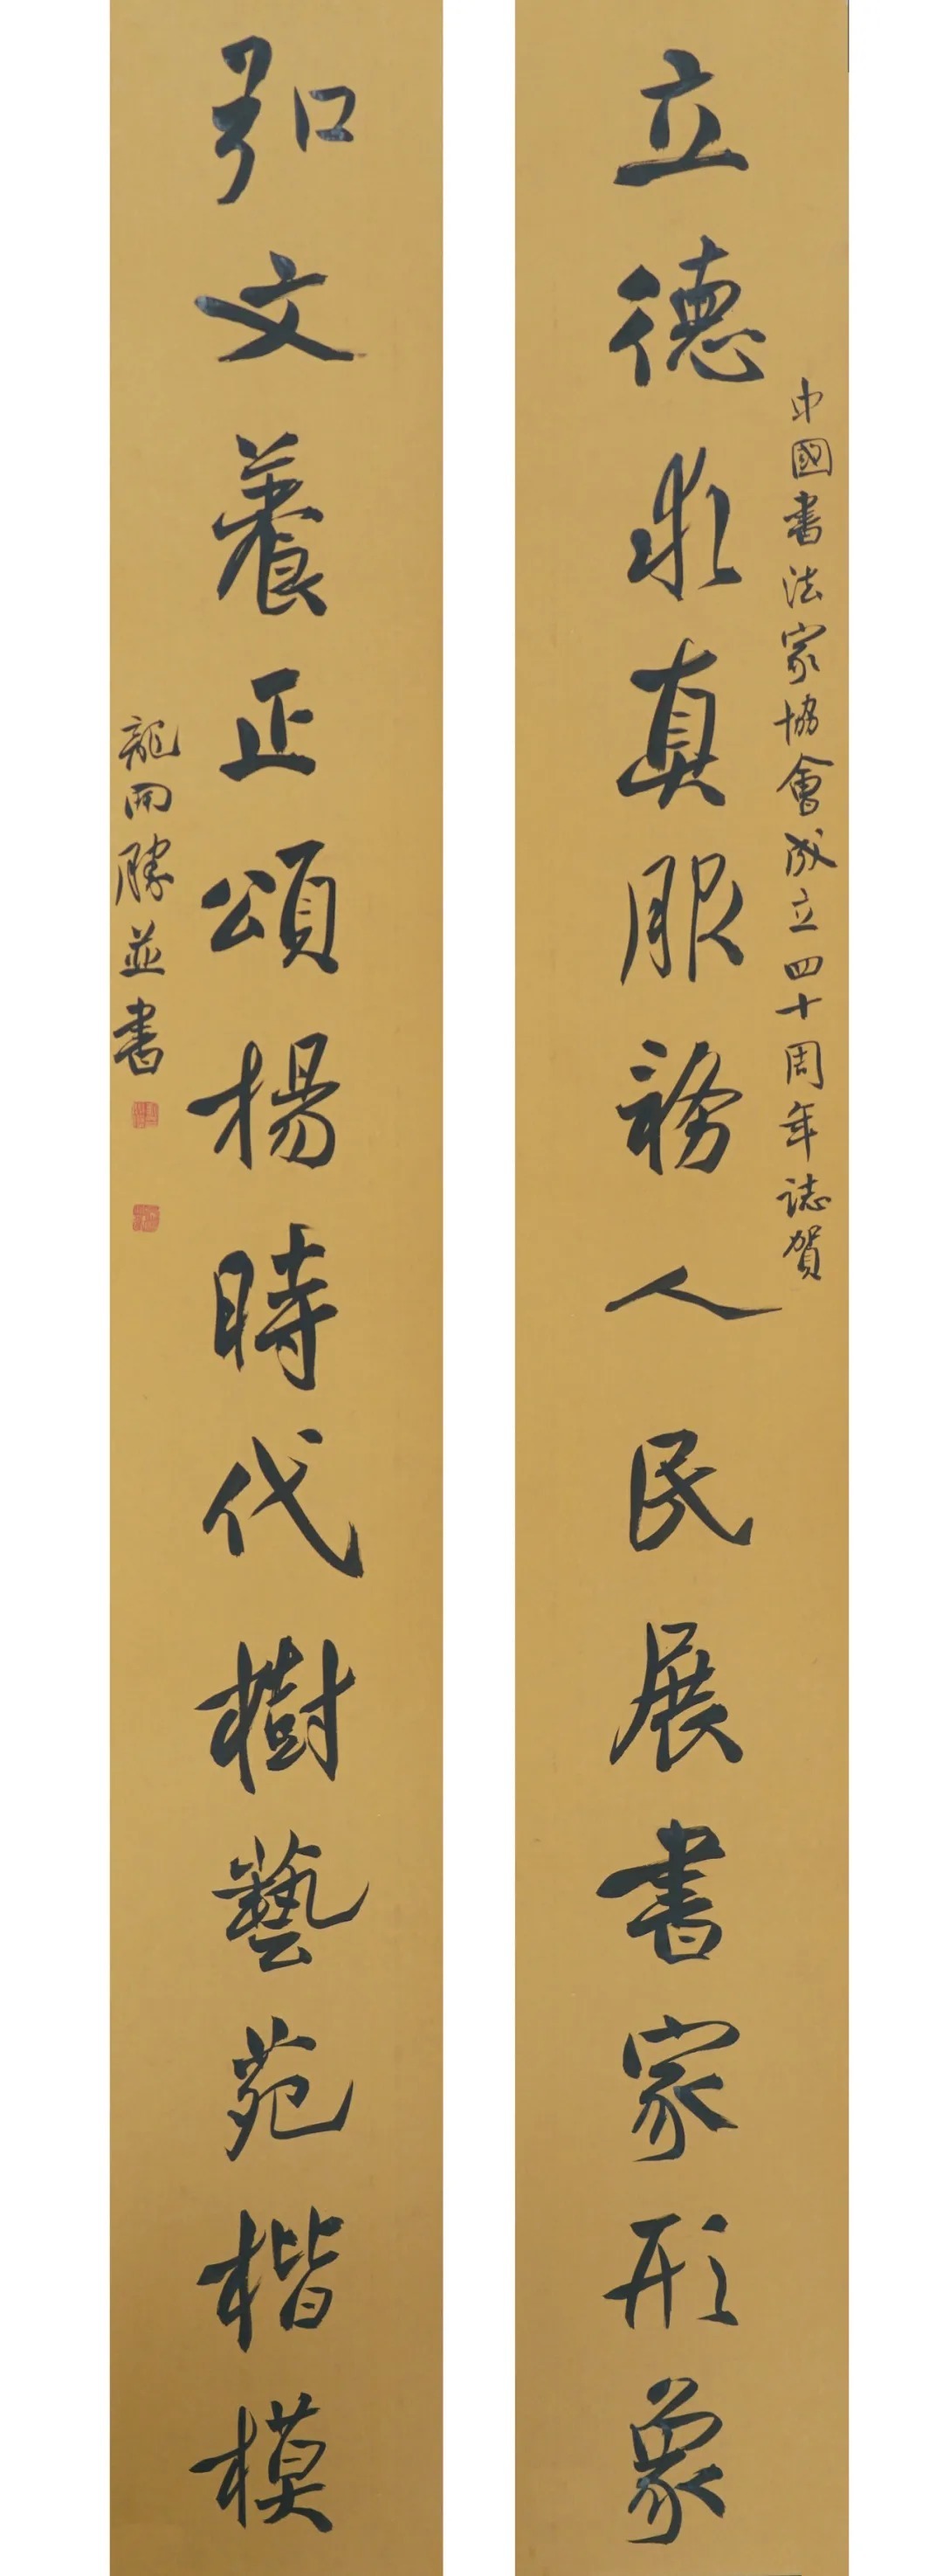 中國書法家協會成立四十周年誌賀
立德求真服務人民展書家形象
弘文養正頌揚時代樹藝苑楷模
龍開勝並書